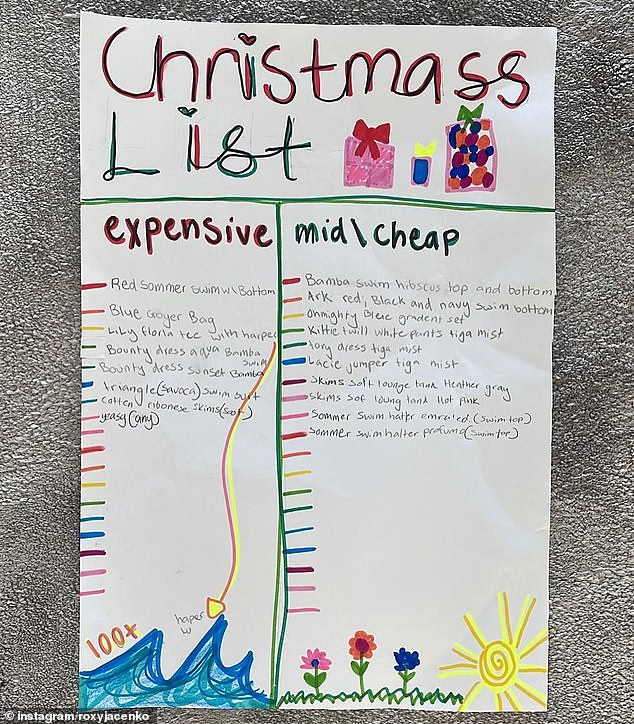 Christmass
List
expensive
Red Sommer swim w\Bottom
Blue Goyer Bag
Lily floria tee with harper
Bounty dress aqua Bamba
swim
Bounty dress sunset Bamba
triangle (savoca) swim suit
cotten ribonese skims (set)
yeasy (any)
haper
w
100+
mid\cheap
Bamba swim hibscus top and bottom
Ark red, Black and navy swim bottom
Onmighty blue gradent set
Kittie twill white pants tiga mist
Tory dress tiga mist
Lacie jumper tiga mist
Skims soft lounge tank Heather gray
skims sof loung tank Hot Pink
Sommer swim halter emraled (swim top)
Sommer swim halter profumo (swim top)
© instagram/roxyjacenko